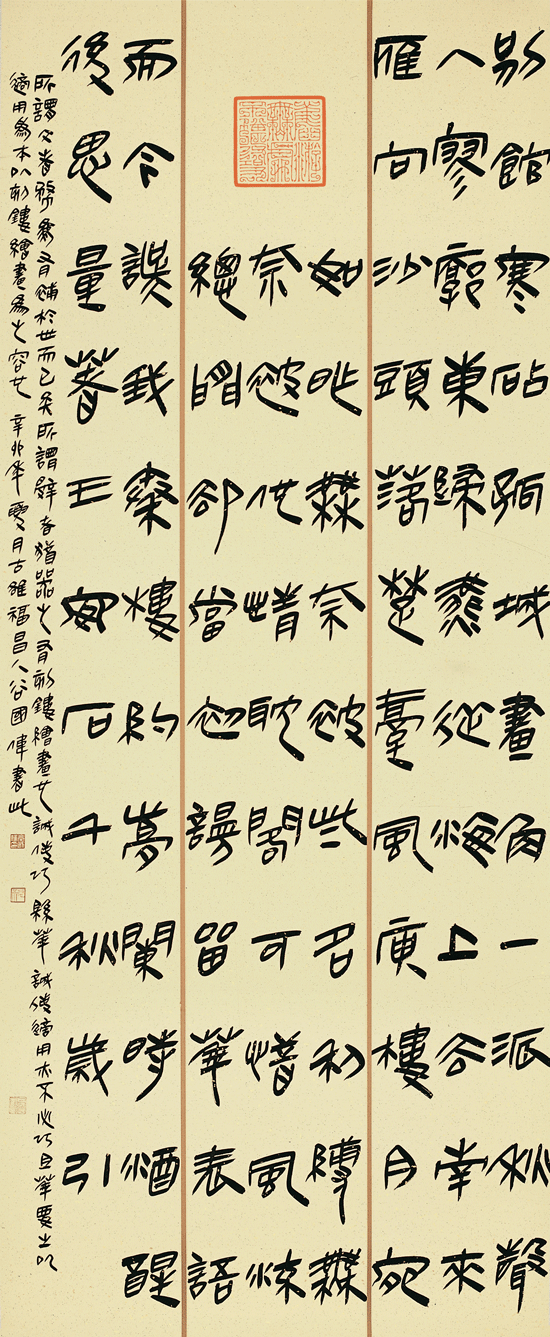 別館寒砧孤城畫角一派秋聲
入寥廓東歸燕從海上去南來
雁向沙頭落楚臺風庾樓月宛
如昨無奈被些名利縛無
奈被他情耽閣可惜風流
總閒卻當初謾留華表語
而今誤我秦樓約夢闌時酒醒
後思量著王安石千秋歲引
所謂文者務為有補於世而已矣所謂辭者猶器之有刻鏤繪畫也誠使巧華誠使適用亦不必巧且華要之以
適用為本以刻鏤繪畫為之容也辛丑年夏月古雒福昌人谷國偉書此